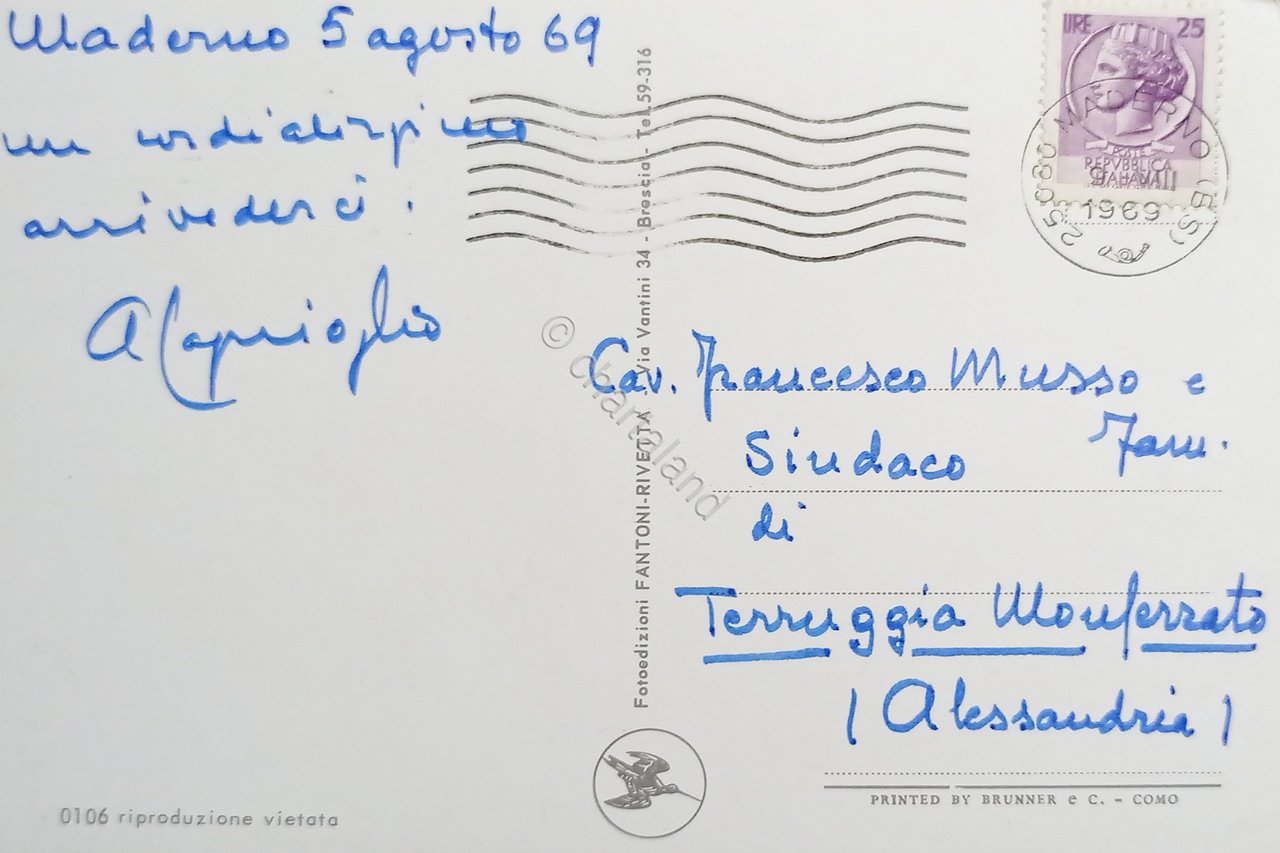 Maderno 5 agosto 69
un cordialissimo
arrivederci.
A Caprioglio
LIRE 25
POSTE
REPVBBLICA
ITALIANA
25080 MADERNO (BS)
1969
Fotoedizioni FANTONI-RIVETTA - Via Vantini 34 - Brescia - Tel. 59-316
© chartaland
Cav. Francesco Musso e
Fam.
Sindaco
di
Terruggia Monferrato
(Alessandria)
PRINTED BY BRUNNER e C. - COMO
0106 riproduzione vietata